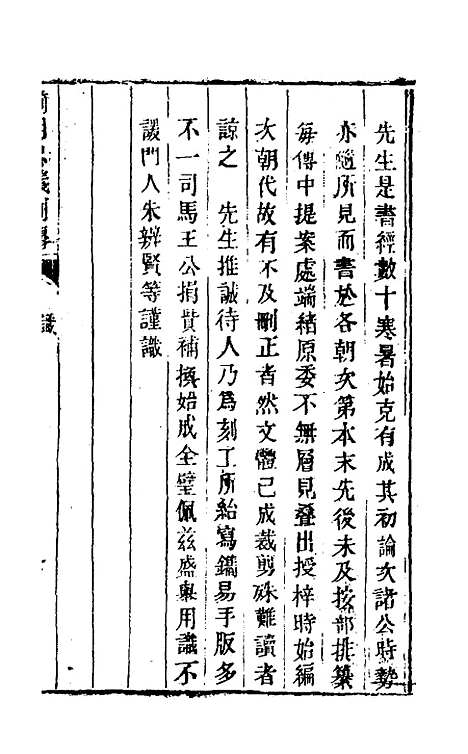 先生是書經數十寒暑始克有成其初論次諸公時勢
亦隨所見而書於各朝次第本末先後未及按部排纂
每傳中提案處端緒原委不無層見疊出授梓時始編
次朝代故有不及刪正者然文體已成裁剪殊難讀者
諒之　先生推誠待人乃爲刻丁所紿寫鐫易手版多
不一司馬王公捐貲補換始成全璧佩兹盛舉用識不
諼門人朱辨賢等謹識
識